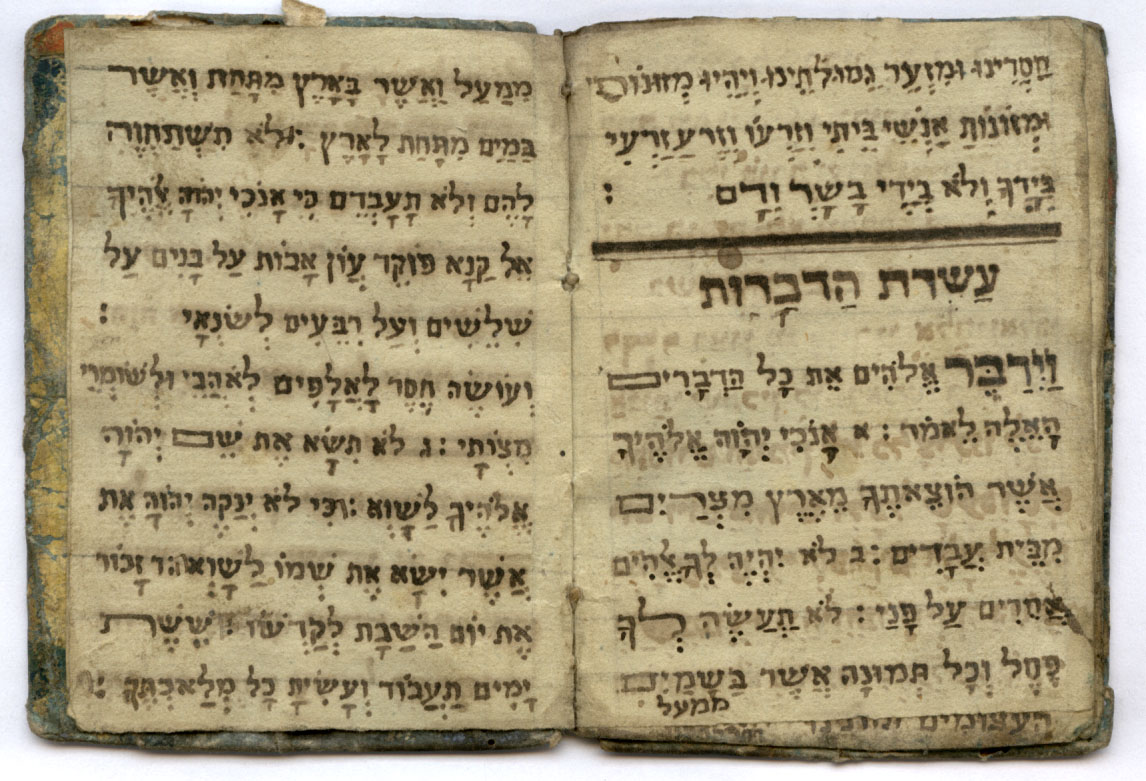 וּמִזְעֵר וְיִהְיוּ מְזוֹנוֹתַי
וּמְזוֹנוֹת אַנְשֵׁי בֵּיתִי וְזַרְעִי וְזֶרַע זַרְעִי
בְּיָדְךָ וְלֹא בִידֵי בָּשָׂר וְדָם :
עֲשֶׂרֶת הַדִּבְּרוֹת
וַיְדַבֵּר אֱלֹהִים אֵת כָּל הַדְּבָרִים
הָאֵלֶּה לֵאמֹר : א אָנֹכִי יְהֹוָה אֱלֹהֶיךָ
אֲשֶׁר הוֹצֵאתִךָ מֵאֶרֶץ מִצְרַיִם
מִבֵּית עֲבָדִים : ב לֹא יִהְיֶה לְךָ אֱלֹהִים
אֲחֵרִים עַל פָּנַי : לֹא תַעֲשֶׂה לְךָ
פֶּסֶל וְכָל תְּמוּנָה אֲשֶׁר בַּשָּׁמַיִם
ממעל
העצומים
מִמַּעַל וַאֲשֶׁר בָּאָרֶץ מִתַּחַת וַאֲשֶׁר
בַּמַּיִם מִתַּחַת לָאָרֶץ : לֹא תִשְׁתַּחֲוֶה
לָהֶם וְלֹא תָעָבְדֵם כִּי אָנֹכִי יְהֹוָה אֱלֹהֶיךָ
אֵל קַנָּא פּוֹקֵד עֲוֹן אָבוֹת עַל בָּנִים עַל
שִׁלֵּשִׁים וְעַל רִבֵּעִים לְשׂנְאָי :
וְעוֹשֶׂה חֶסֶד לַאֲלָפִים לְאֹהֲבַי וּלְשׁוֹמְרֵי
מִצְוֹתָי : ג לֹא תִשָּׂא אֶת שֵׁם יְהֹוָה
אֱלֹהֶיךָ לַשָּׁוְא : כִּי לֹא יְנַקֶּה יְהֹוָה אֵת
אֲשֶׁר יִשָּׂא אֶת שְׁמוֹ לַשָּׁוְא : ד זָכוֹר
אֶת יוֹם הַשַּׁבָּת לְקַדְּשׁוֹ : שֵׁשֶׁת
יָמִים תַּעֲבוֹד וְעָשִׂיתָ כָּל מְלַאכְתֶּךָ :